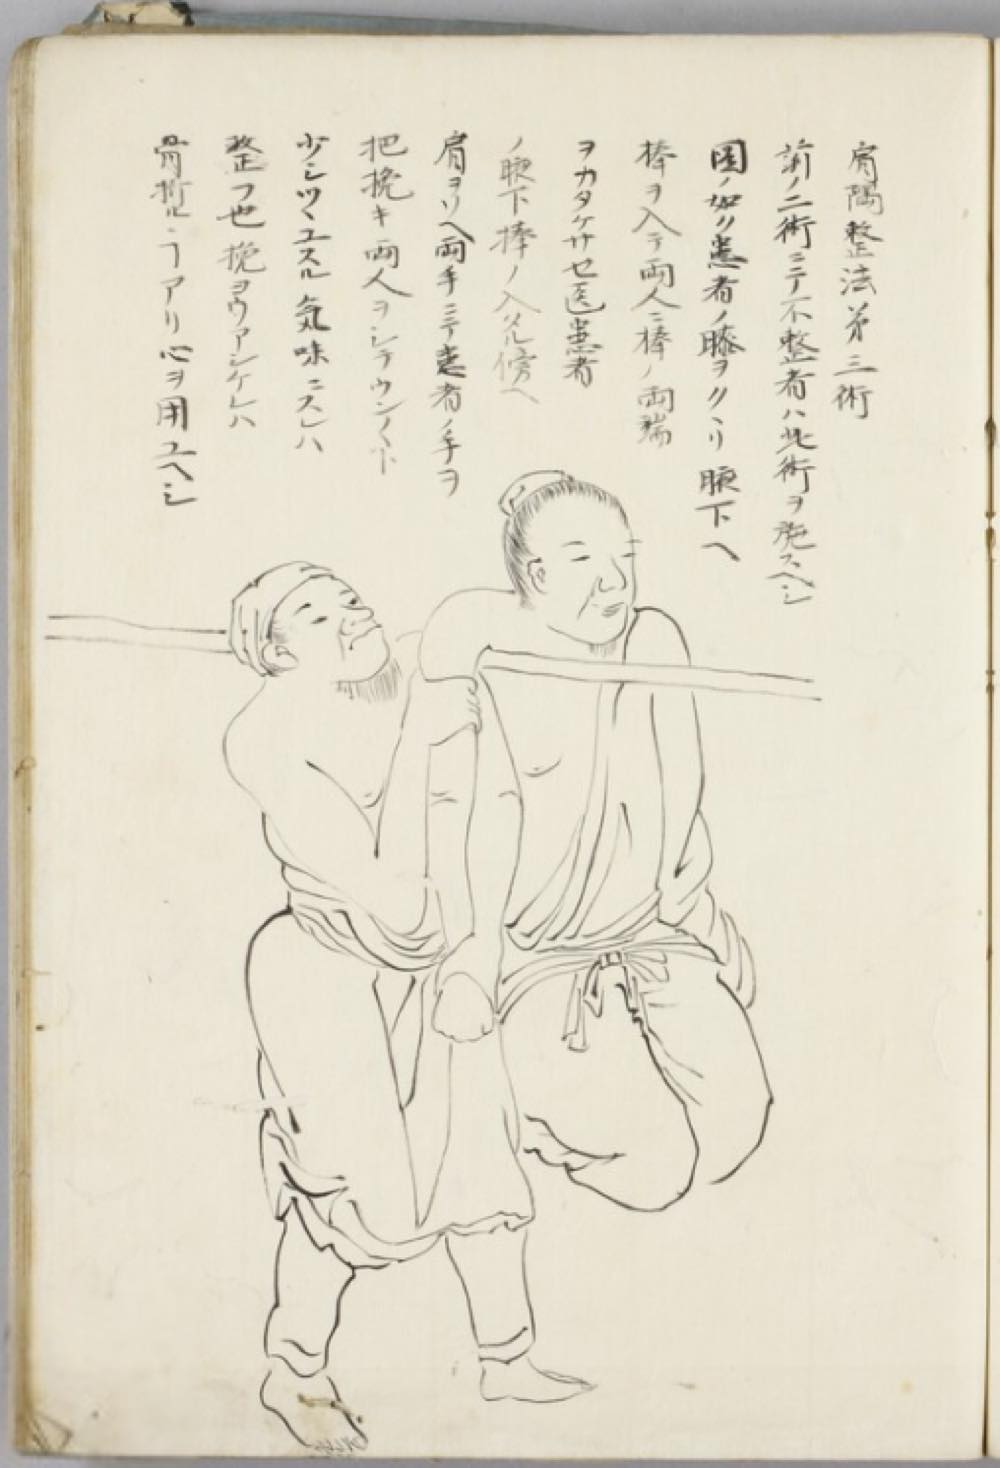 肩隅整法第三術
前ノ二術ニテ不整者ハ此術ヲ施スヘシ
図ノ如ク患者ノ膝ヲクヽリ腋下ヘ
棒ヲ入テ両人ニ棒ノ両端
ヲカタケサセ医患者
ノ腋下捧ノ入タル傍ヘ
肩ヲソヘ両手ニテ患者ノ手ヲ
把挽キ両人ヲシテウン〳〵ト
少シツヽユスル気味ニスレハ
整フ也挽ヨウアシケレハ
骨折ルヿアリ心ヲ用ユヘシ